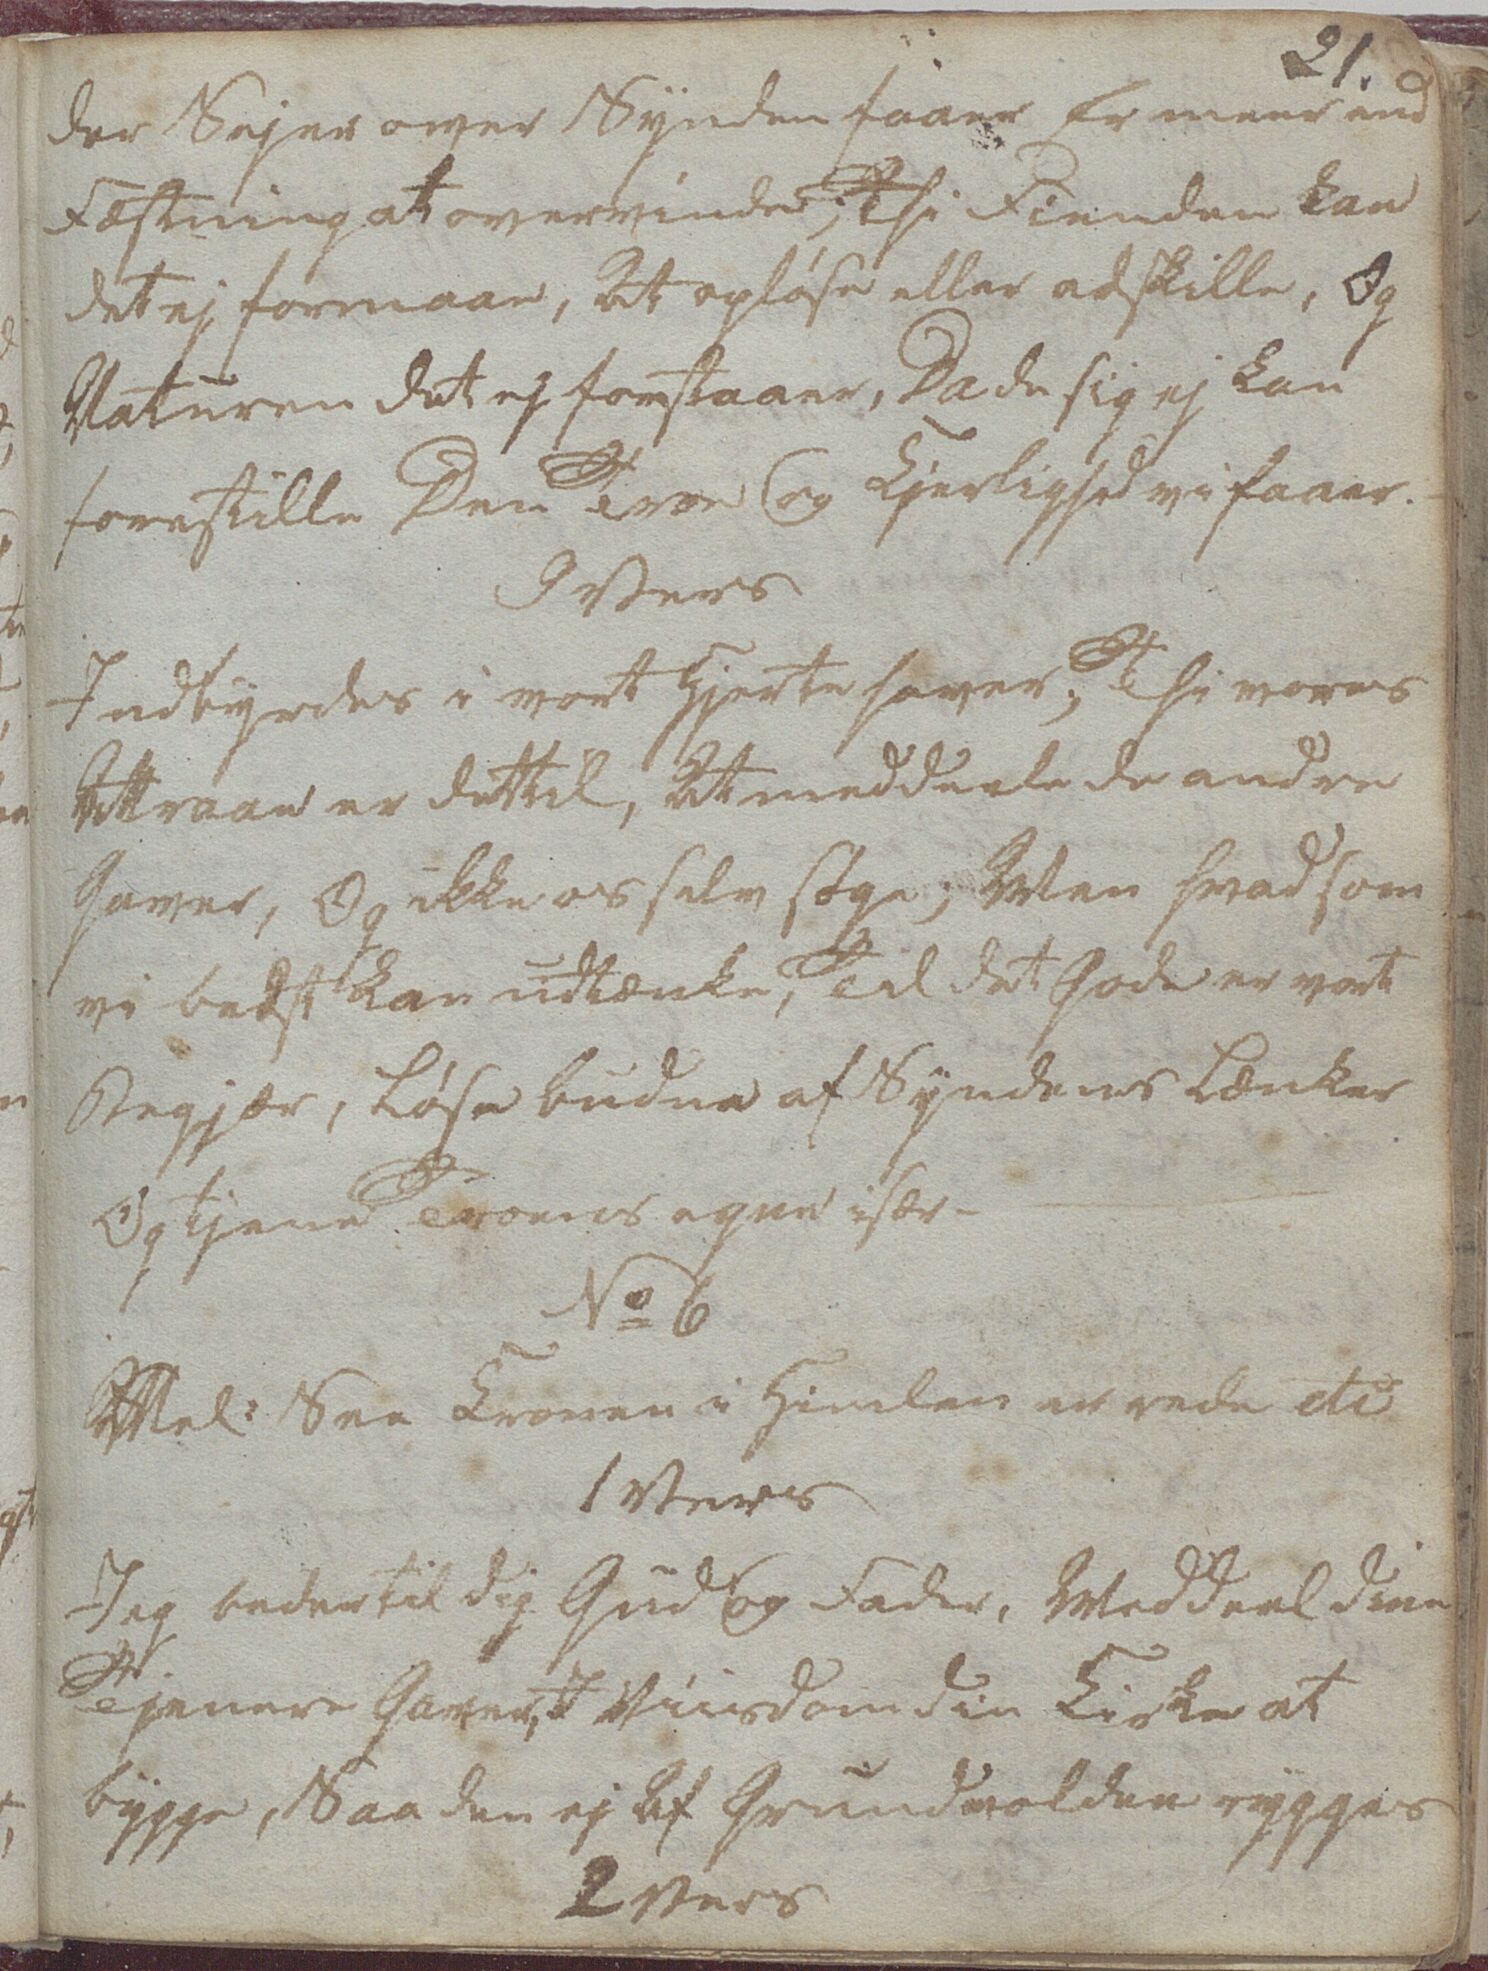 21.
der Sejer over Synden faaer Er meer end
Fæstning at overvinde; Thi Fienden kan
det ej formaae, At opløse eller adskille, Og
Naturen det ej forstaaer, Da de sig ej kan
forestille Den Troe og Kjerlighed vi faaer.
9 Vers
Indbyrdes i vort Hjerte haver; Thi vores
Attraae er dertil, At meddeele de andre
Gaver, Og ikke os selv søge; Men hvad som
vi bedst kan udtænke, Til det Gode er vort
Begjær, Løse bundne af Syndens Lænker
Og tjene Troens egne især-
No 6
Mel: See Kronen i Himlen er rede etc
1 Vers
Jeg beder til dig Gud og Fader, Meddeel dine
Tjenere Gaver, I Viisdom din Kirke at
bygge, Saa den ej Af Grundvolden rygges
2 Vers